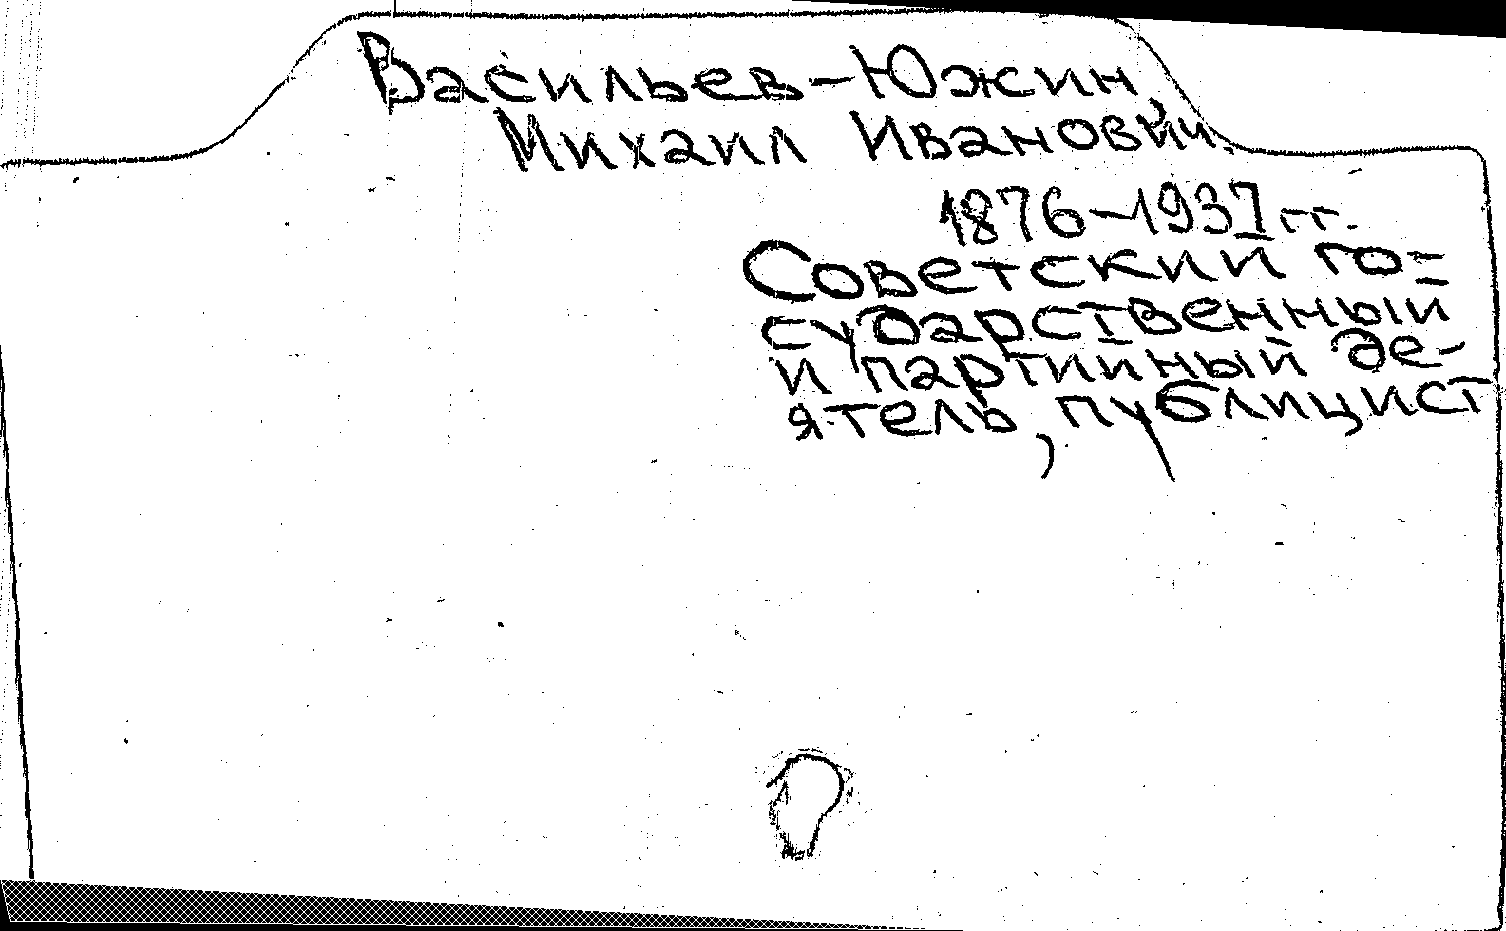 Васильев-Южин
Михаил Иванович
1876-1937 гг.
Советский го=
сударственный
и партийный де-
ятель, публицист